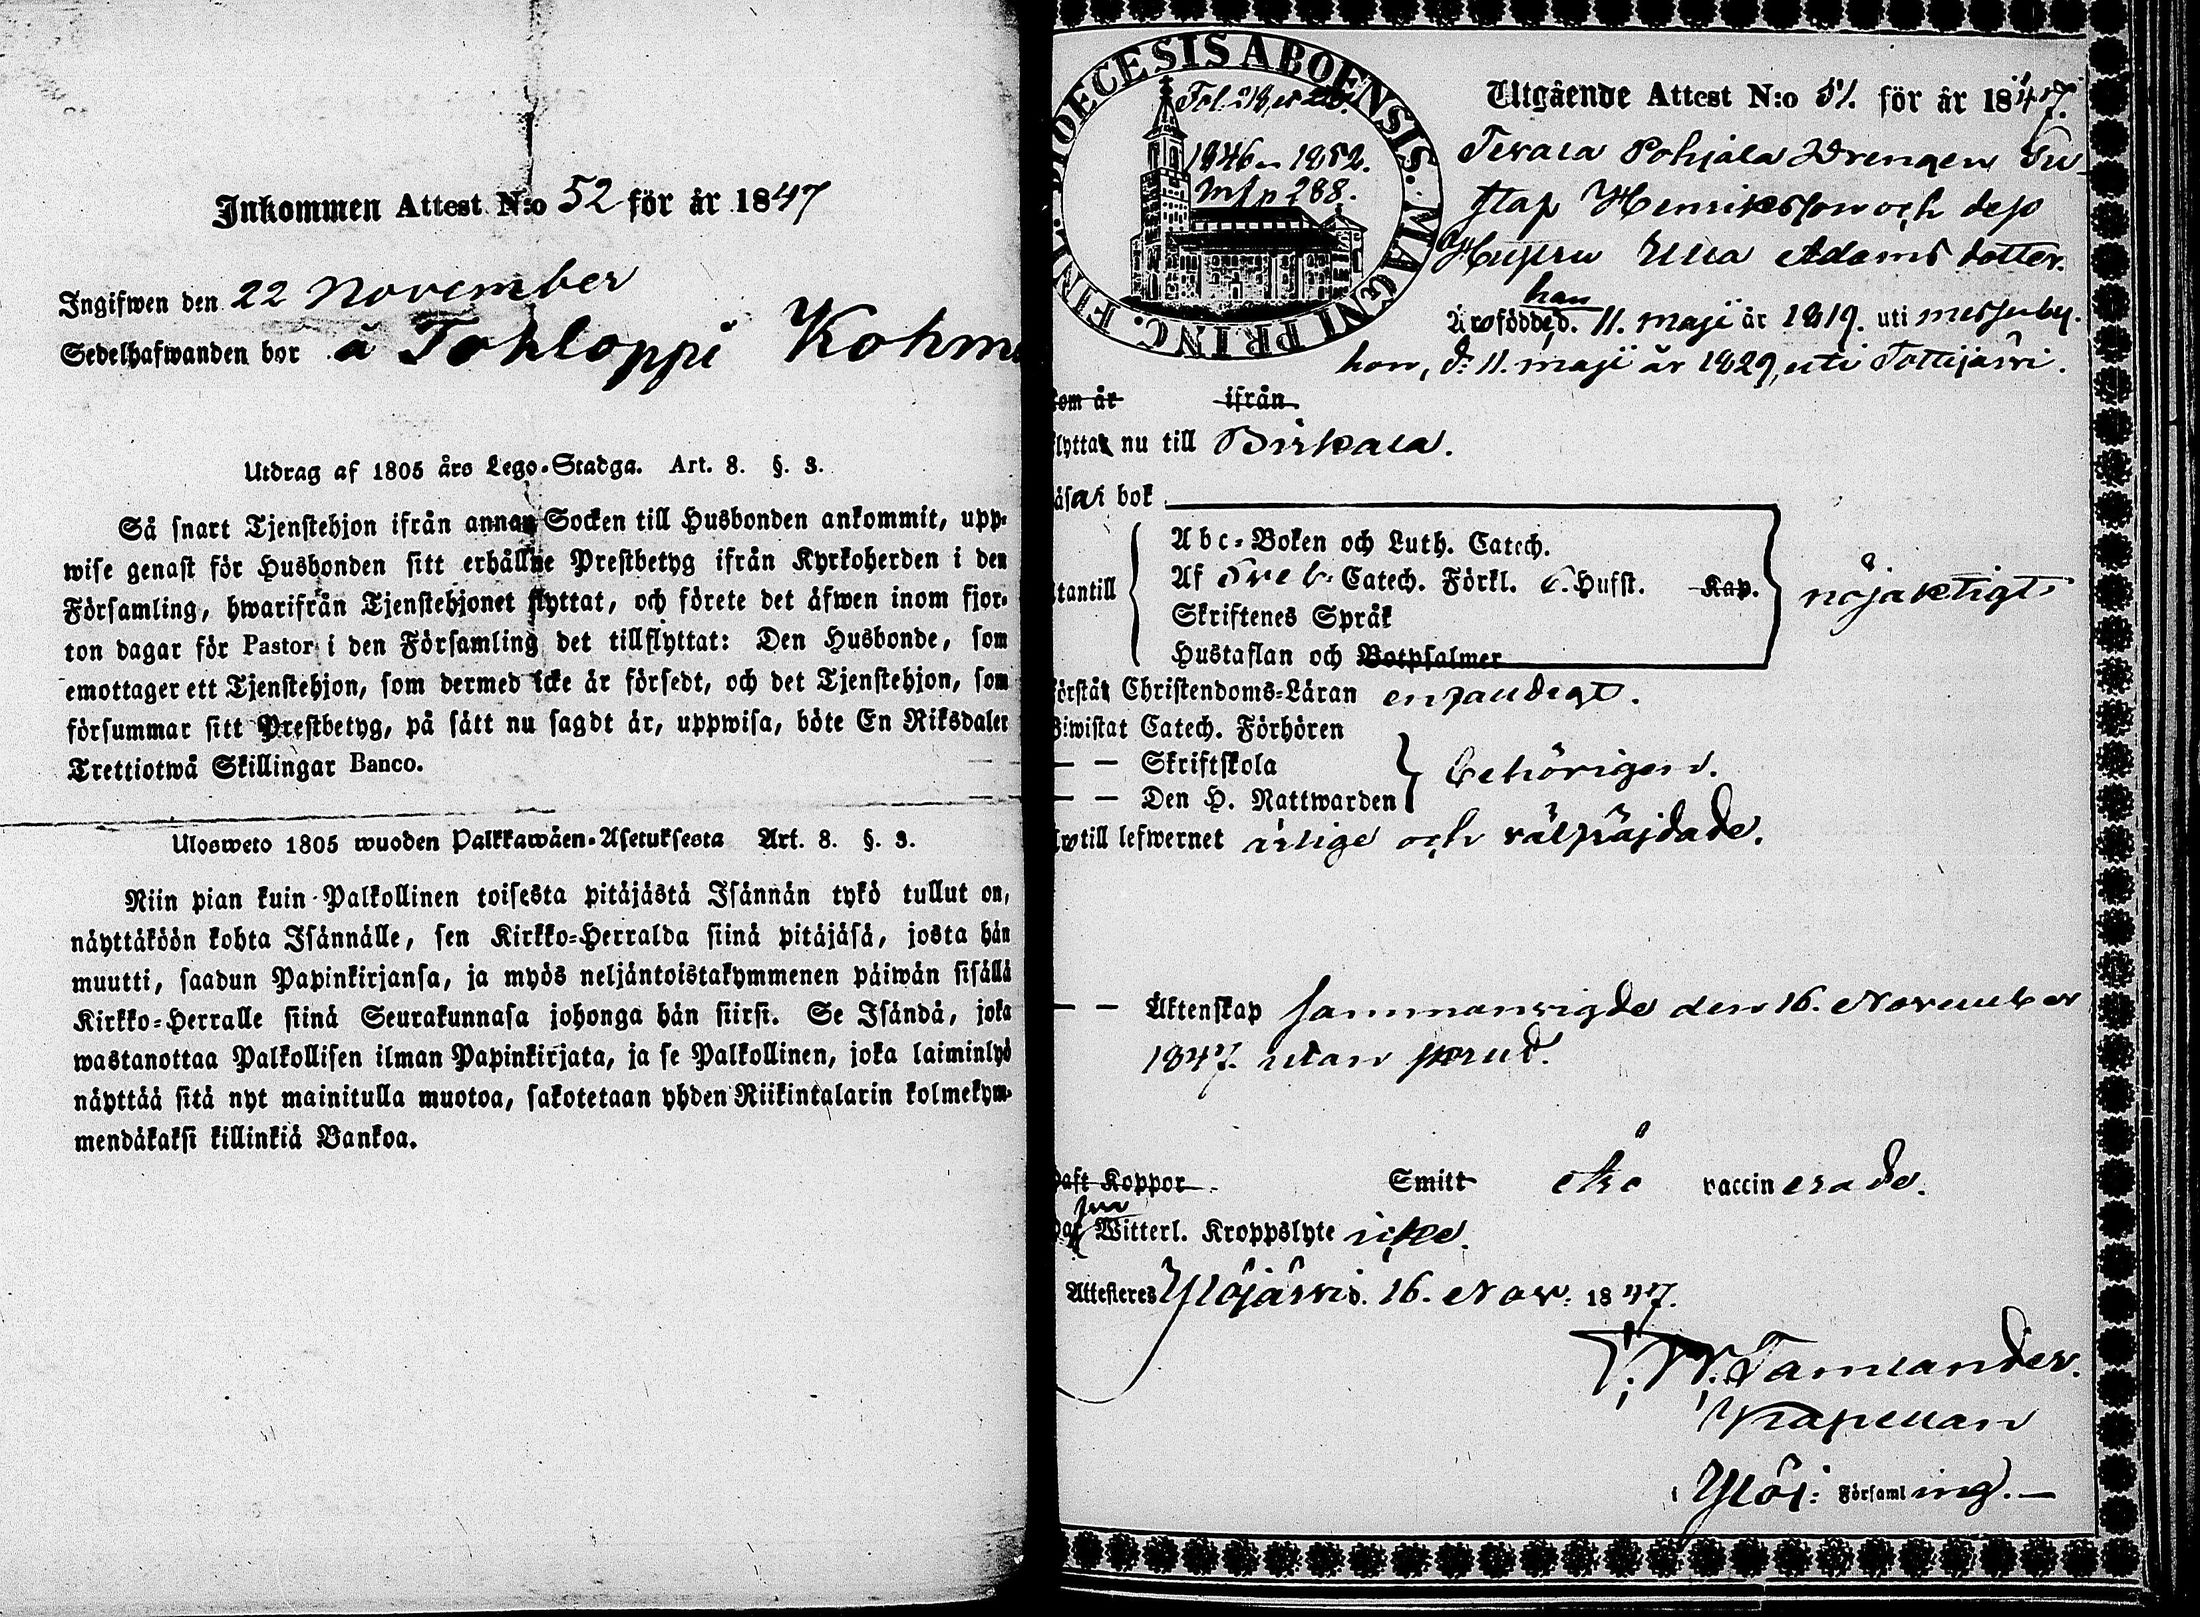 Inkommen Attest N:o 52 för år 1847
Ingifwen den 22 November
Sedelhafwanden bor å Tohloppi Kohm
Utdrag af 1805 års Lego-Stadga. Art. 8. §. 3.
Så snart Tjenstehjon ifrån annan Socken till Husbonden ankommit, upp-
wise genast för Husbonden sitt erhållne Prestbetyg ifrån Kyrkoherden i den
Församling, hwarifrån Tjenstehjonet flyttat, och förete det äfwen inom fjor-
ton dagar för Pastor i den Församling det tillflyttat: Den Husbonde, som
emottager ett Tjenstehjon, som dermed icke är försedt, och det Tjenstehjon, som
försummar sitt Prestbetyg, på sätt nu sagdt är, uppwisa, böte En Riksdaler
Trettiotwå Skillingar Banco.
Ulosweto 1805 wuoden Palkkawäen-Asetuksesta Art. 8. §. 3.
Niin pian kuin Palkollinen toisesta pitäjästä Isännän tykö tullut on,
näyttäköön kohta Isännälle, sen Kirkko-Herralda siinä pitäjäsä, josta hän
muutti, saadun Papinkirjansa, ja myös neljäntoistakymmenen päiwän sisällä
Kirkko-Herralle siinä Seurakunnasa johonga hän siirsi. Se Isändä, joka
wastanottaa Palkollisen ilman Papinkirjata, ja se Palkollinen, joka laiminlyö
näyttää sitä nyt mainitulla muotoa, sakotetaan yhden Riikintalarin kolmekym-
mendäkaksi killinkiä Bankoa.
DIOECESIS ABOENSIS. MAGNI PRINC. FINL.
1846 - 1852.
Msp 288.
Utgående Attest N:o 51. för år 1847.
Pohjala Drengen Gu-
staf Henriksson och dess
Hustru Ulla Adams dotter.
han
Äro födde d. 11. maji år 1819. uti messuby.
hon, d: 11. maji år 1829, uti Tottijärvi.
kom år ifrån
flyttar nu till Birkala.
läsa i bok
Abc-Boken och Luth. Catech.
Af Sveb. Catech. Förkl. Husst. Kap.
utantill nöjaktigt
Skriftenes Språk
Hustaflan och Botpsalmer
förstår Christendoms-Läran enfaldigt.
Biwistat Catech. Förhören
— — Skriftskola
behörigen.
— — Den H. Nattwarden
till lefwernet ärlige och välfräjdade.
— — Äktenskap sammanvigde den 16. November
1847. utan brud.
haft Koppor Smitt vaccinerade.
Witterl. Kroppslyte icke.
Attesteres Ylöjärvi d. 16. Nov: 1847.
Tamlander.
Kapellan
i Ylöj: Församling. —